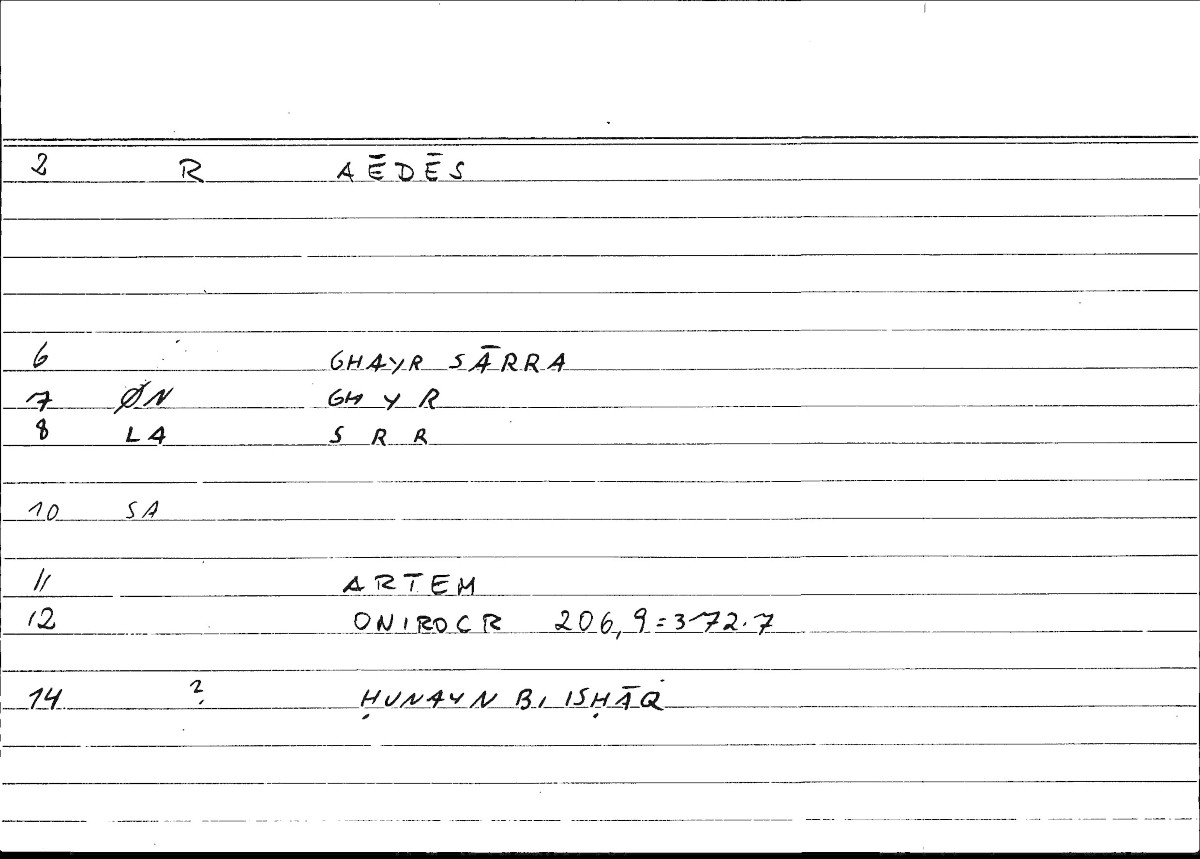 2 R AĒDĒS
6 GHAYR SĀRRA
7 ØN GH Y R
8 LA S R R
10 SA
11 ARTEM
12 ONIROCR 206,9=372.7
14 ? ḤUNAYN B, ISḤĀQ